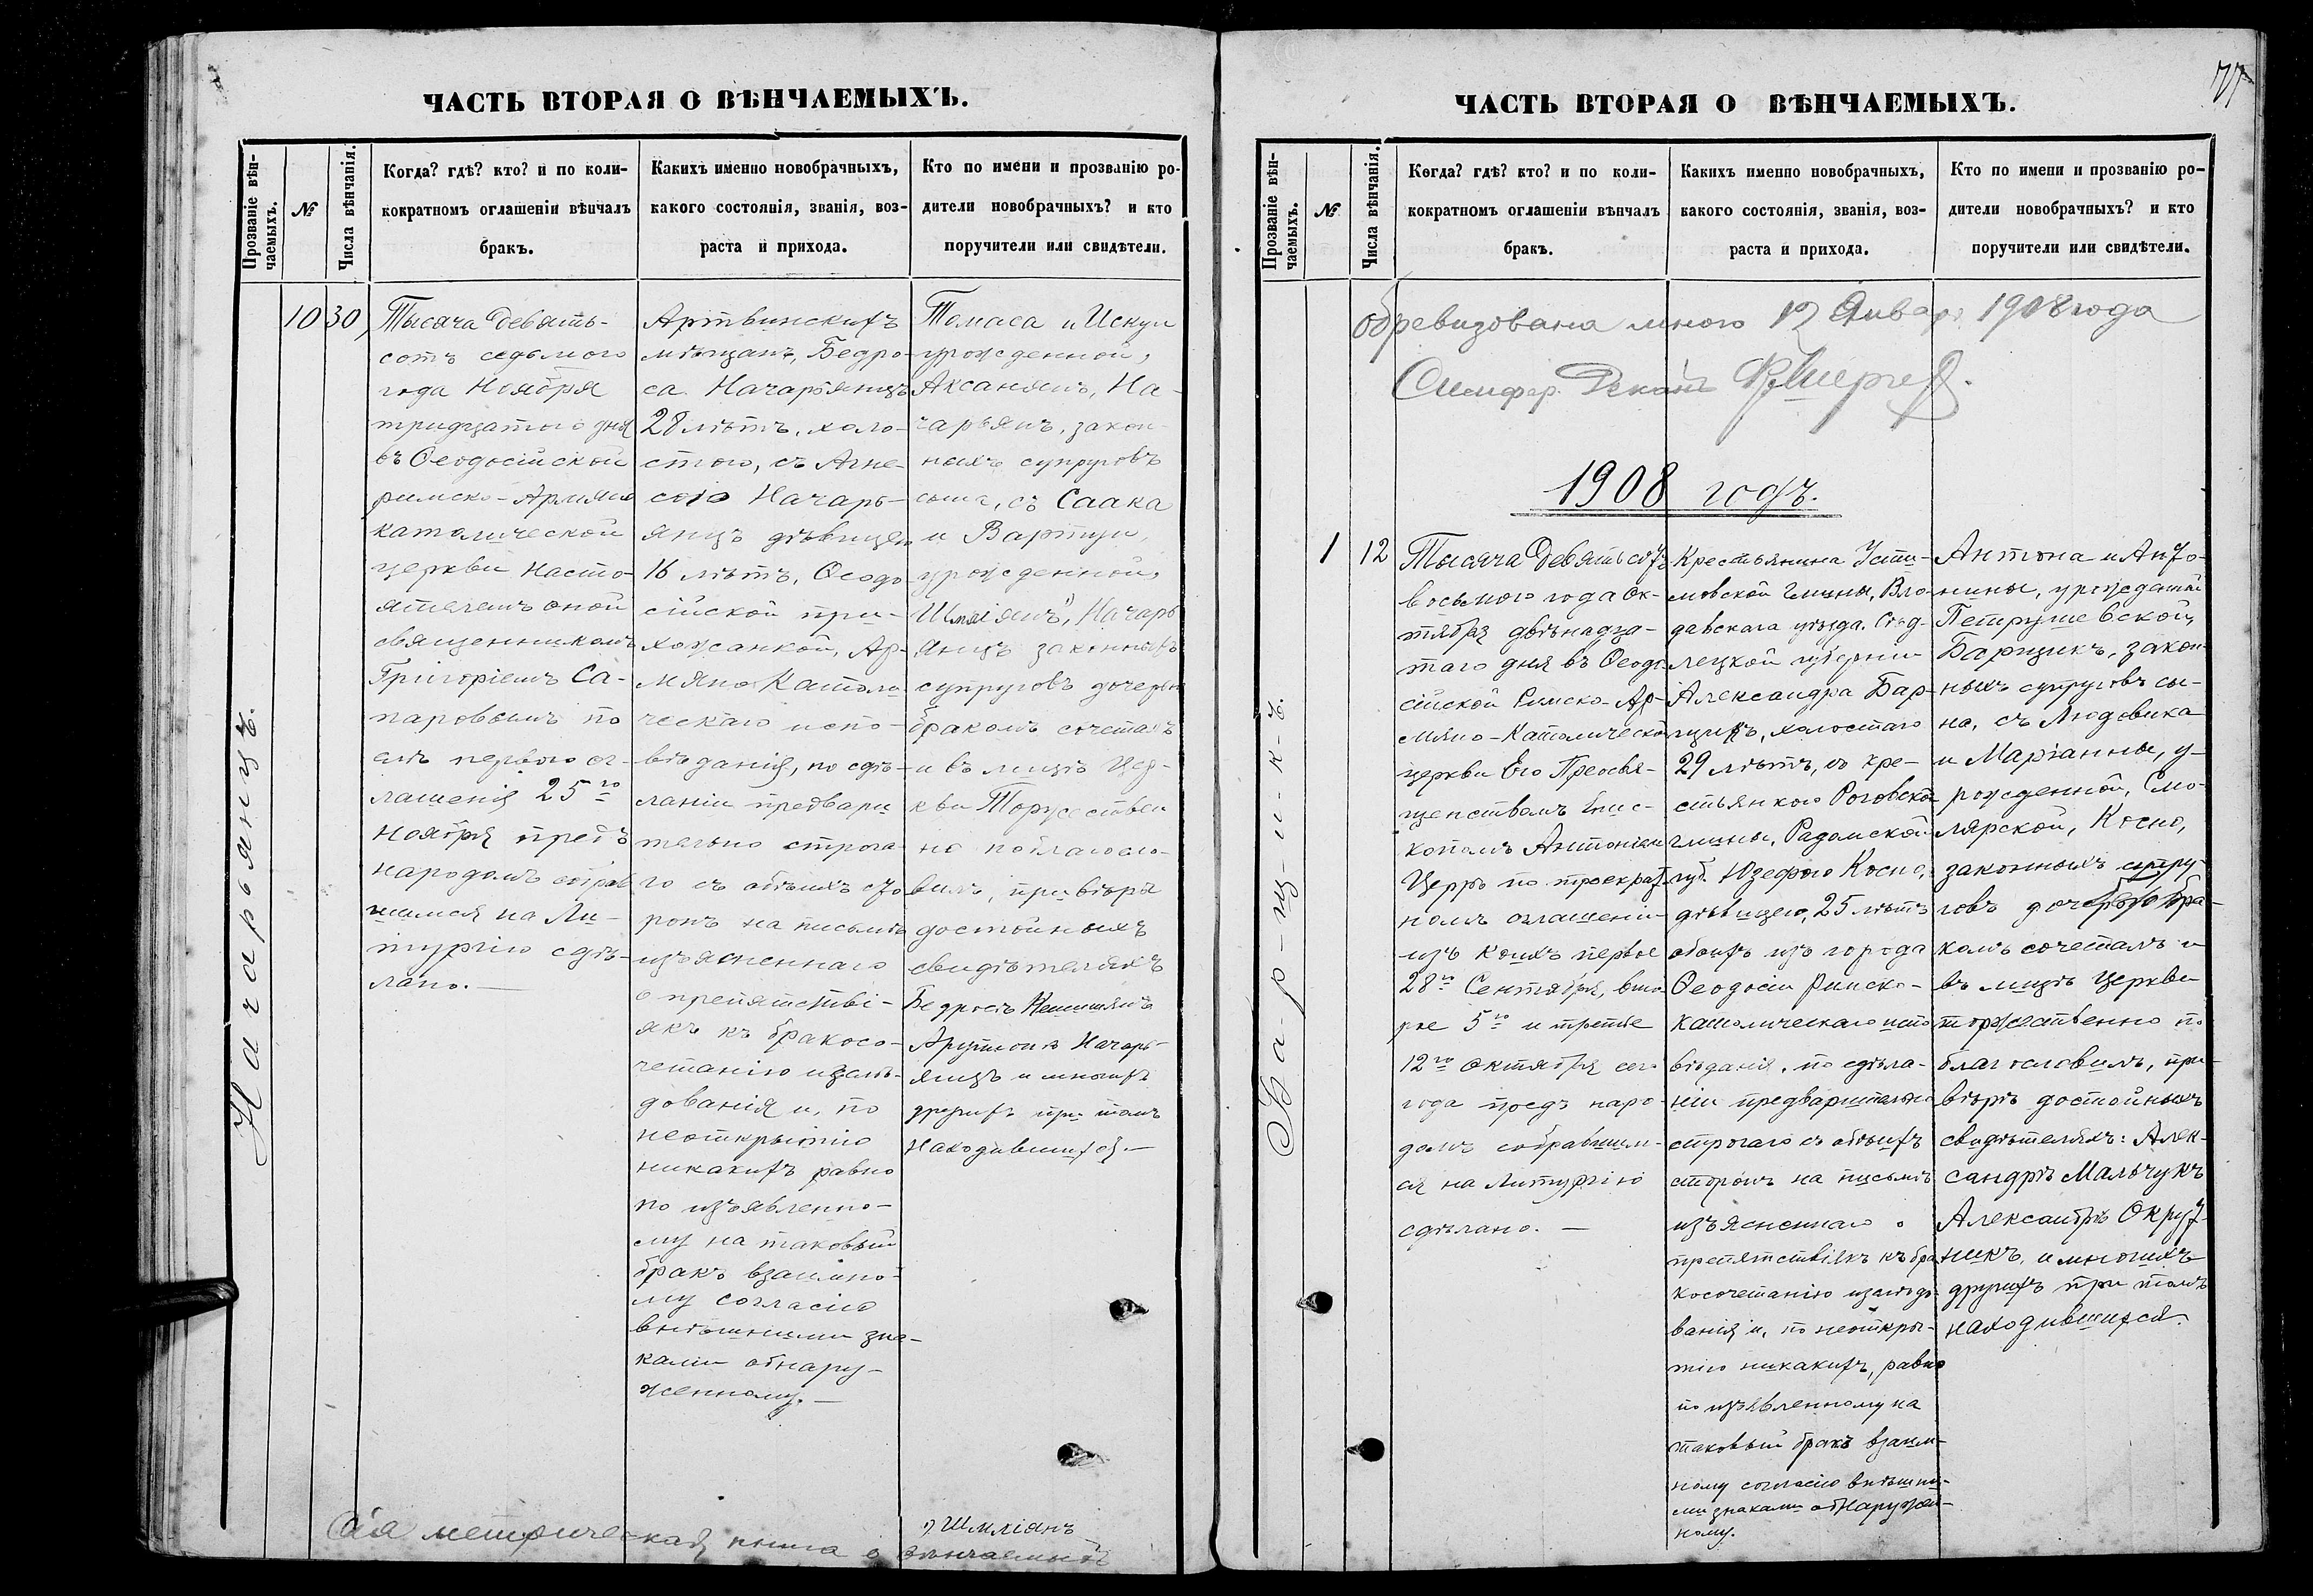 ЧАСТЬ ВТОРАЯ О ВѢНЧАЕМЫХЪ.
Прозваніе вѣн-
чаемыхъ.
№
Числа вѣнчанія.
Когда? гдѣ? кто? и по коли-
кократномъ оглашеніи вѣнчалъ
бракъ.
Какихъ именно новобрачныхъ,
какого состоянія, званія, воз-
раста и прихода.
Кто по имени и прозванію ро-
дители новобрачныхъ? и кто
поручители или свидѣтели.
Начарьянцъ.
10
30
Тысяча девять-
сотъ седьмого
года Ноября
тридцатого дня
въ Ѳеодосійской
римско-Армяно
католической
церкви насто-
ятелемъ оной
священникомъ
Григоріемъ Са-
паровымъ по
слѣ первого ог-
лашенія 25го
Ноября предъ
народомъ собрав
шимся на Ли-
тургію сдѣ-
лано.—
Артвинскихъ
мѣщанъ, Бедро-
са Начарьянцъ
28 лѣтъ, холо-
стого, съ Агне-
сою Начарь-
янцъ дѣвицею
16 лѣтъ, Ѳеодо
сійской при-
хожанкой, Ар-
мяно Католи
ческаго испо-
вѣданія, по сдѣ-
ланіи предвари
тельно строга-
го съ обѣихъ сто
ронъ на письмѣ
изъясненнаго
о препятстві-
яхъ къ бракосо-
четанію изслѣ-
дованія и, по
неоткрытію
никакихъ равно
по изъявленно-
му на таковый
бракъ взаимно-
му согласію
внѣшними зна-
ками обнару-
женному.—
Томаса и Искуи
урожденной,
Аксанянъ, На-
чарьянъ, закон-
ныхъ супруговъ
сына, съ Саака
и Вартуи,
урожденной,
Шмліянъ, Начарь
янцъ законныхъ
супруговъ дочерью
бракомъ сочеталъ
и въ лицѣ Цер-
кви Торжествен
но поблагосло-
вилъ, при вѣрѣ
достойныхъ
свидѣтеляхъ
Бедросъ Кешишянъ
Арутюнъ Начарь-
янцъ и многихъ
другихъ при томъ
находившихся.—
1) Шмліянъ
Сія метрическая книга о вѣнчаемыхъ
77
ЧАСТЬ ВТОРАЯ О ВѢНЧАЕМЫХЪ.
Прозваніе вѣн-
чаемыхъ.
№
Числа вѣнчанія.
Когда? гдѣ? кто? и по коли-
кократномъ оглашеніи вѣнчалъ
бракъ.
Какихъ именно новобрачныхъ,
какого состоянія, званія, воз-
раста и прихода.
Кто по имени и прозванію ро-
дители новобрачныхъ? и кто
поручители или свидѣтели.
Обревизована мною 12 Января 1908 года
Симфер. Деканъ
1908 годъ.
Ба-р-щ-и-к-ъ.
1
12
Тысяча девятьсотъ
восьмого года Ок-
тября двѣнадца-
таго дня въ Ѳеодо-
сійской Римско-Ар-
мяно-Католической
церкви Его Преосвя-
щенствомъ Епис-
копомъ Антоніемъ
Церръ по троекрат-
номъ оглашеніи
изъ коихъ первое
28го Сентября, вто-
рое 5го и третье
12го октября сего
года предъ наро-
домъ собравшим-
ся на Литургію
сдѣлано.—
Крестьянина Усти-
мовской гмины, Вло
давскаго уѣзда. Сѣд-
лецкой губерніи
Александра Бар-
щикъ, холостаго
29 лѣтъ, съ кре-
стьянкою Роговской
гмины, Радомской
губ. Юзефою Косно,
дѣвицею, 25 лѣтъ
обоихъ изъ города
Ѳеодосіи Римско-
католическаго испо
вѣданія, по сдѣла-
ніи предварительно
строгаго съ обѣихъ
сторонъ на письмѣ
изъясненнаго о
препятствіяхъ къ бра
косочетанію изслѣдо-
ванія и, по неоткры-
тію никакихъ, равно
по изъявленному на
таковый бракъ взаим-
ному согласію внѣшни-
ми знаками обнаружен-
ному.
Антона и Анто-
нины, урожденной
Петрушевской,
Барщикъ, закон-
ныхъ супруговъ сы-
на, съ Людовика
и Маріанны, у-
рожденной, Смо-
лярской, Косно,
законныхъ супру-
говъ дочерью бра-
комъ сочеталъ и
въ лицѣ Церкви
торжественно по
благословилъ, при
вѣрѣ достойныхъ
свидѣтеляхъ: Алек-
сандръ Мальчукъ
Александръ Окрут-
никъ, и многихъ
другихъ при томъ
находившихся.